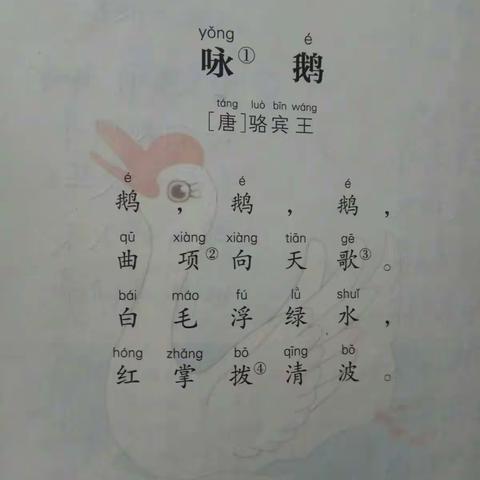 yǒng é
咏① 鹅
táng luò bīn wáng
[唐]骆宾王
é é é
鹅，鹅，鹅，
qū xiàng xiàng tiān gē
曲项②向天歌③。
bái máo fú lǜ shuǐ
白毛浮绿水，
hóng zhǎng bō qīng bō
红掌拨④清波。